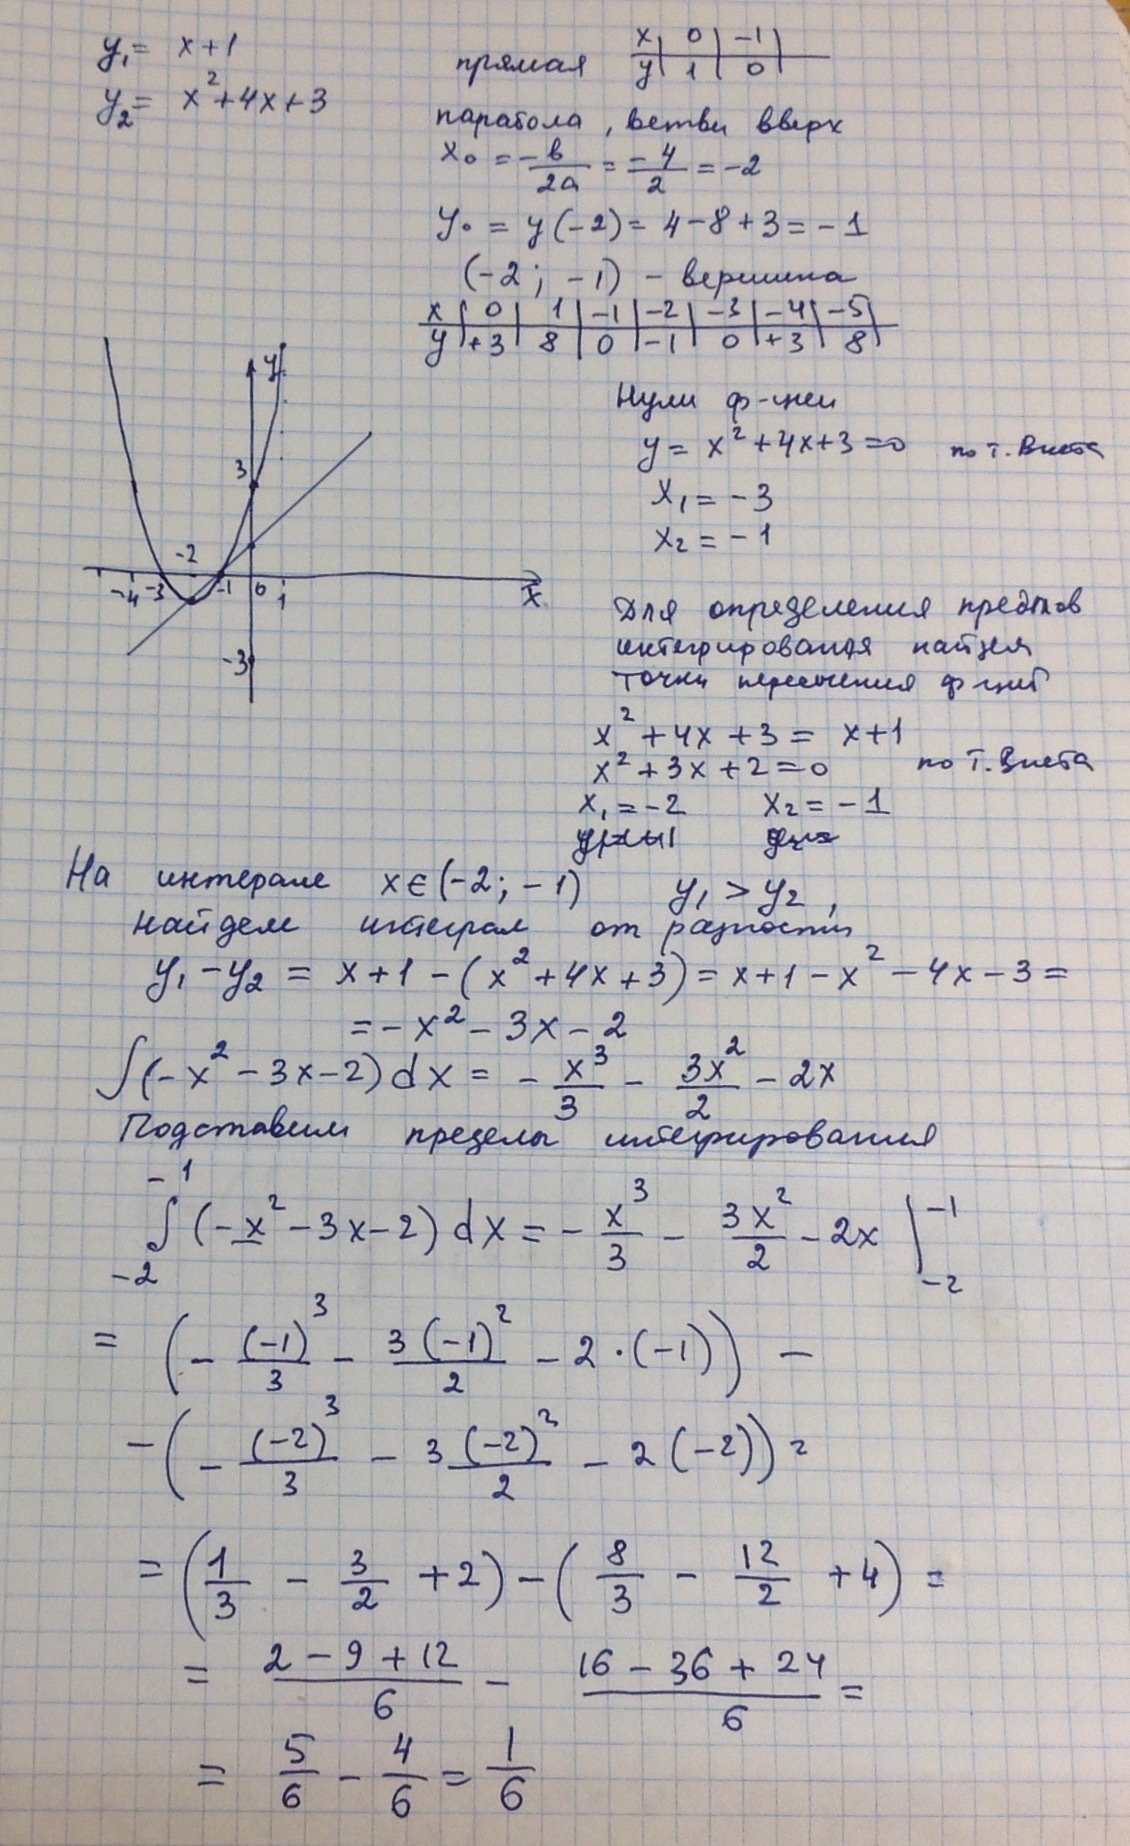 y₁ = x+1
y₂ = x²+4x+3
прямая
x | 0 | -1 |
y | 1 | 0 |
парабола, ветви вверх
x₀ = -b/2a = -4/2 = -2
y₀ = y(-2) = 4-8+3 = -1
(-2; -1) - вершина
x | 0 | 1 | -1 | -2 | -3 | -4 | -5 |
y | +3 | 8 | 0 | -1 | 0 | +3 | 8 |
y
3
-2
-4 -3 -1 0 1
x
-3
Нули ф-ции
y = x²+4x+3 = 0 по т. Виета
x₁ = -3
x₂ = -1
Для определения
интегрирования найдем
точки пересечения ф-ций
x²+4x+3 = x+1
x²+3x+2 = 0 по т. Виета
x₁ = -2 x₂ = -1
На интервале x∈(-2; -1) y₁ > y₂,
найдем интеграл от разности
y₁-y₂ = x+1-(x²+4x+3) = x+1-x²-4x-3 =
= -x²-3x-2
∫(-x²-3x-2)dx = -x³/3 - 3x²/2 - 2x
Подставим пределы интегрирования
-1
∫(-x²-3x-2)dx = -x³/3 - 3x²/2 - 2x |-1 -2
-2
= (-(-1)³/3 - 3(-1)²/2 - 2·(-1)) -
-(-(-2)³/3 - 3(-2)²/2 - 2(-2)) =
= (1/3 - 3/2 + 2) - (8/3 - 12/2 + 4) =
= 2-9+12/6 - 16-36+24/6 =
= 5/6 - 4/6 = 1/6